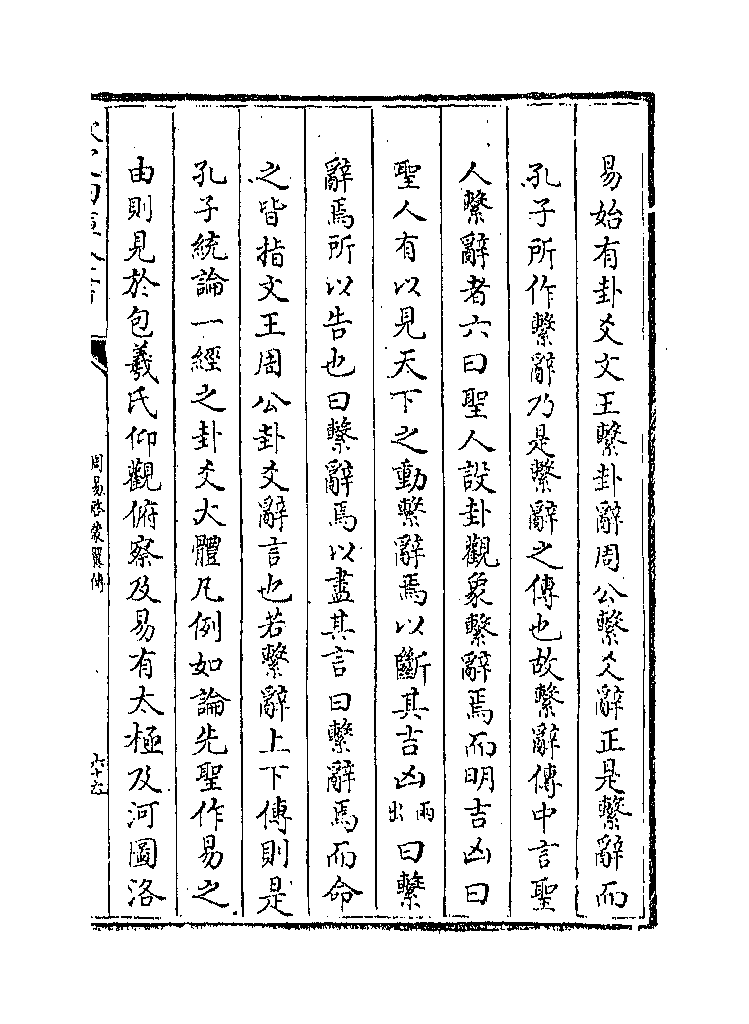 易始有卦爻文王繫卦辭周公繫爻辭正是繫辭而
孔子所作繫辭乃是繫辭之傳也故繫辭傳中言聖
人繫辭者六曰聖人設卦觀象繫辭焉而明吉凶曰
聖人有以見天下之動繫辭焉以斷其吉凶兩出曰繫
辭焉所以告也曰繫辭焉以盡其言曰繫辭焉而命
之皆指文王周公卦爻辭言也若繫辭上下傳則是
孔子統論一經之卦爻大體凡例如論先聖作易之
由則見於包羲氏仰觀俯察及易有太極及河圖洛
周易啓蒙翼傳
六十六